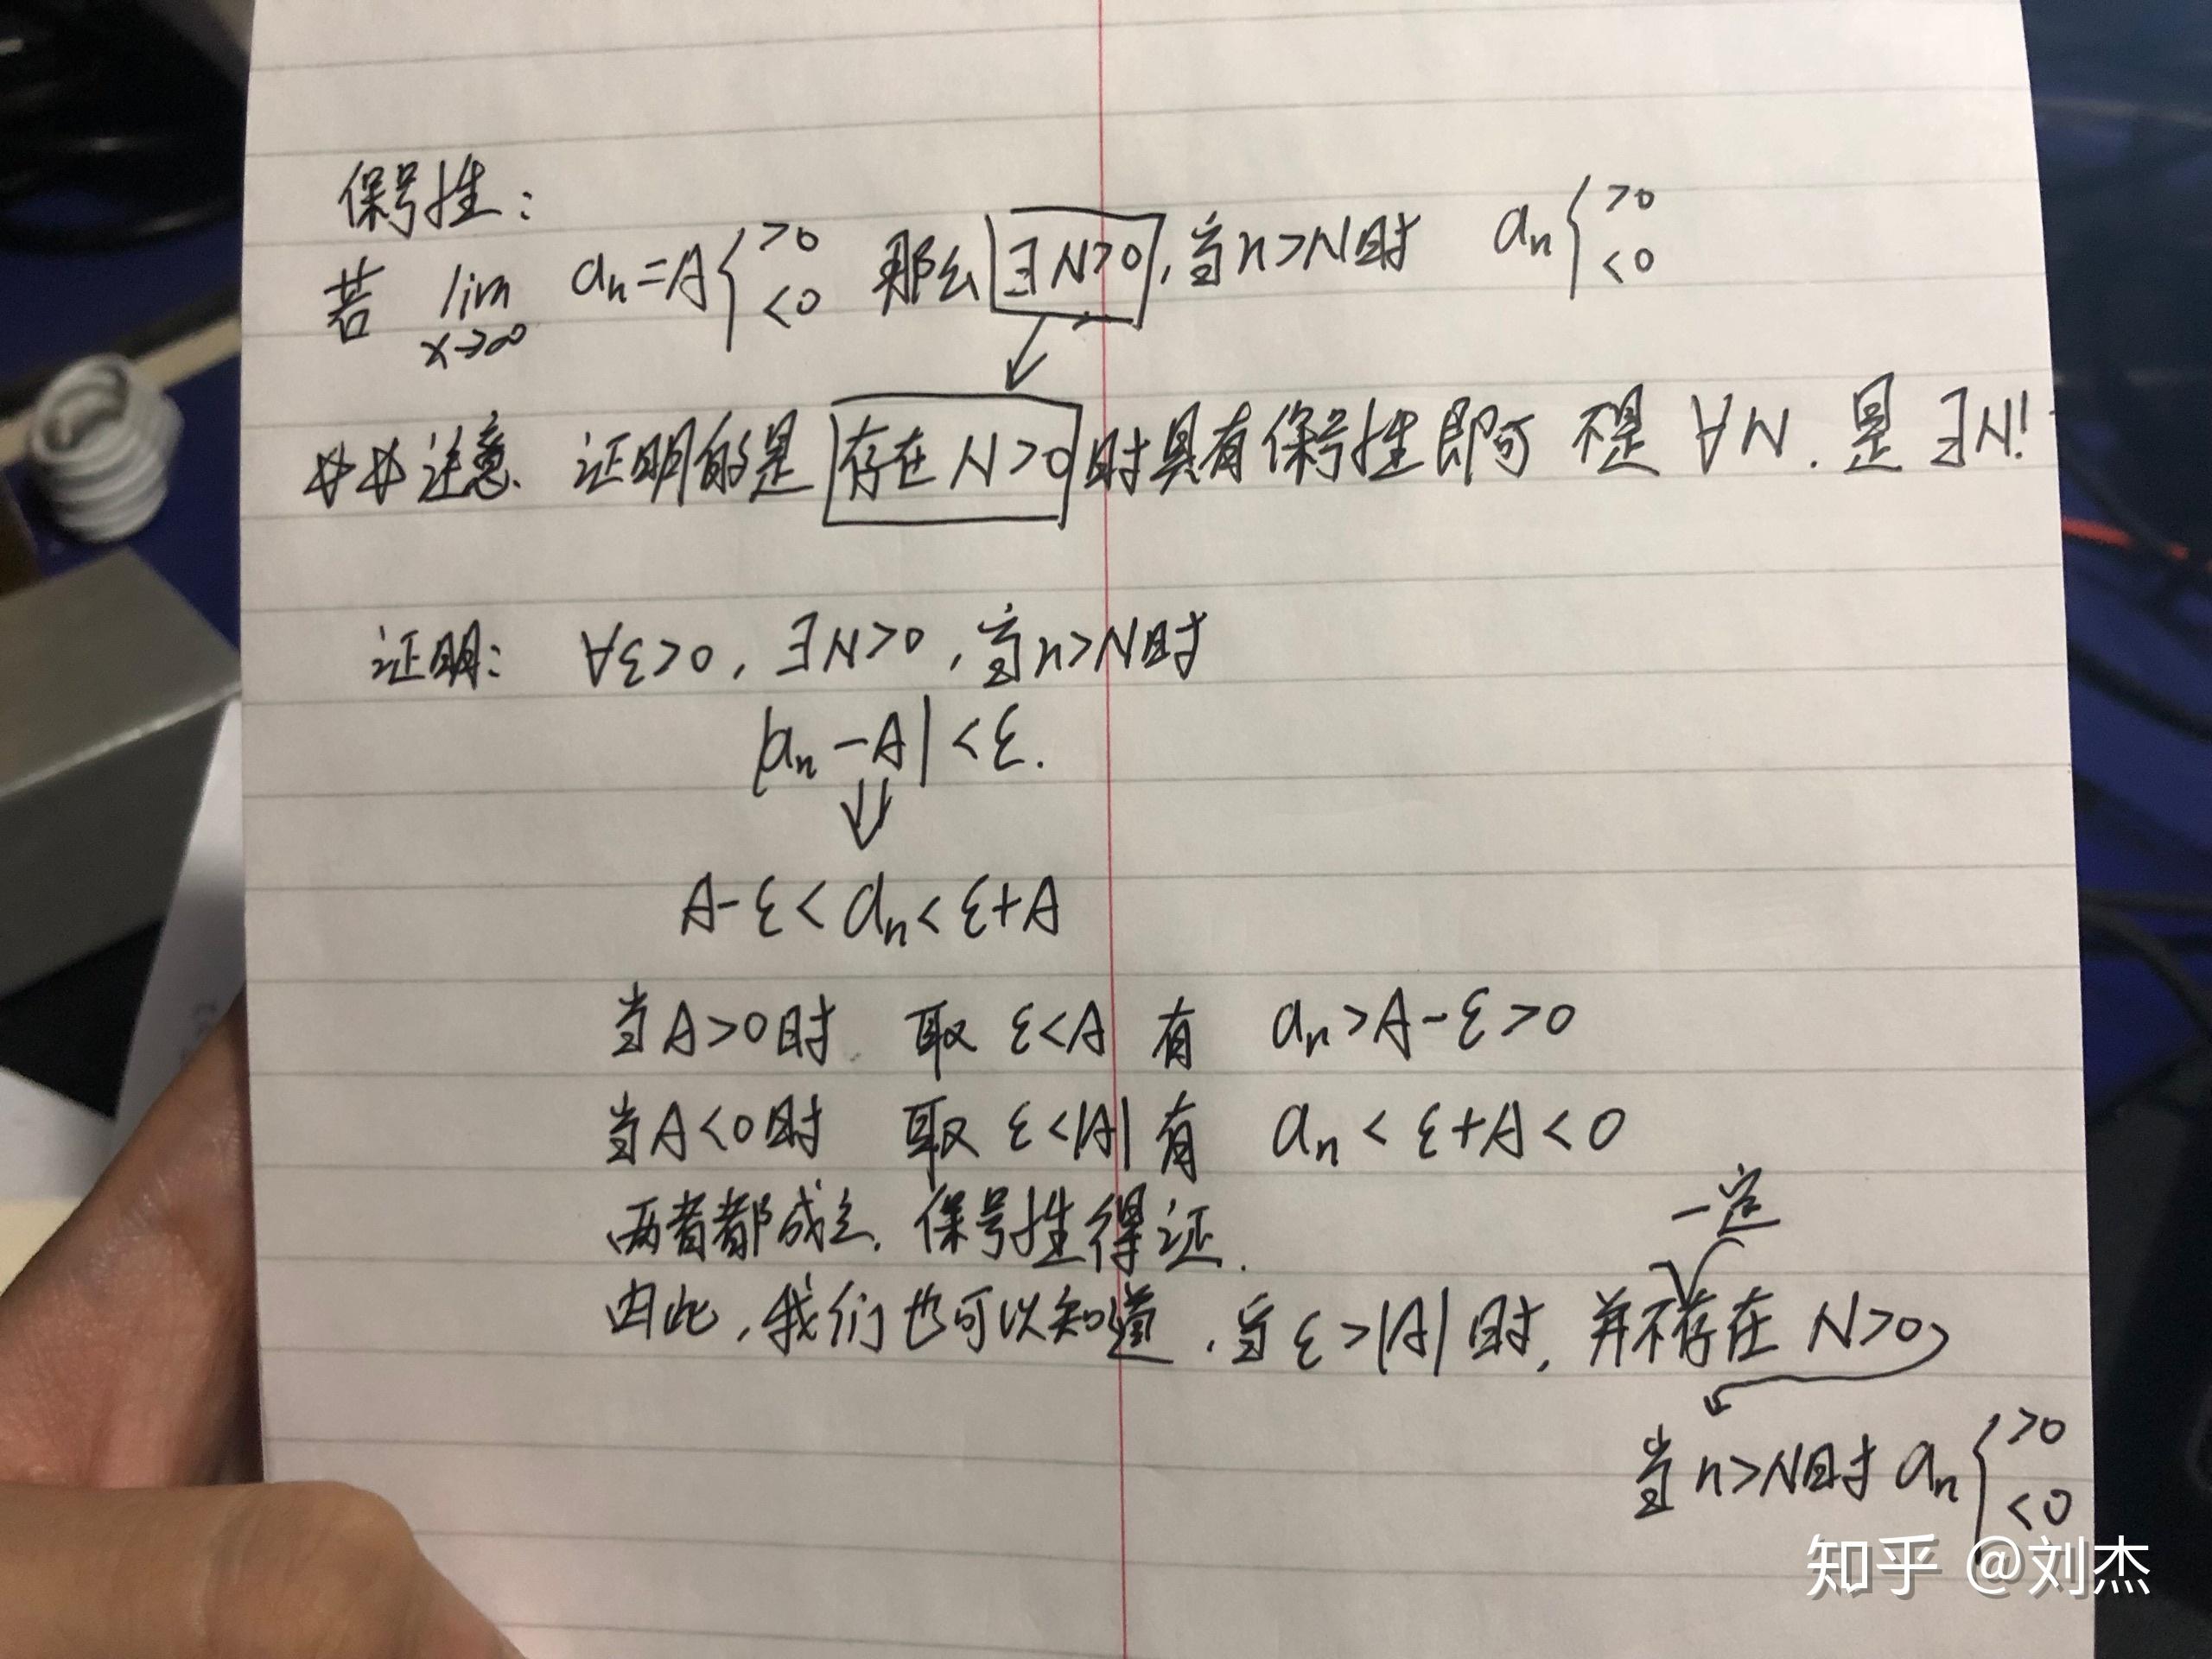 保号性:
若 lim x→∞ an=A { >0 <0 那么 ∃N>0, 当n>N时 an { >0 <0
** 注意. 证明的是 存在N>0 时具有保号性即可 不是 ∀N. 是 ∃N!
证明: ∀ε>0, ∃N>0, 当n>N时
|an-A|<ε.
⇓
A-ε<an<ε+A
当A>0时 取 ε<A 有 an>A-ε>0
当A<0时 取 ε<|A| 有 an<ε+A<0
两者都成立. 保号性得证.
由此, 我们也可以知道, 当 ε>|A| 时, 并不一定存在 N>0,
当n>N时 an { >0 <0
知乎 @刘杰